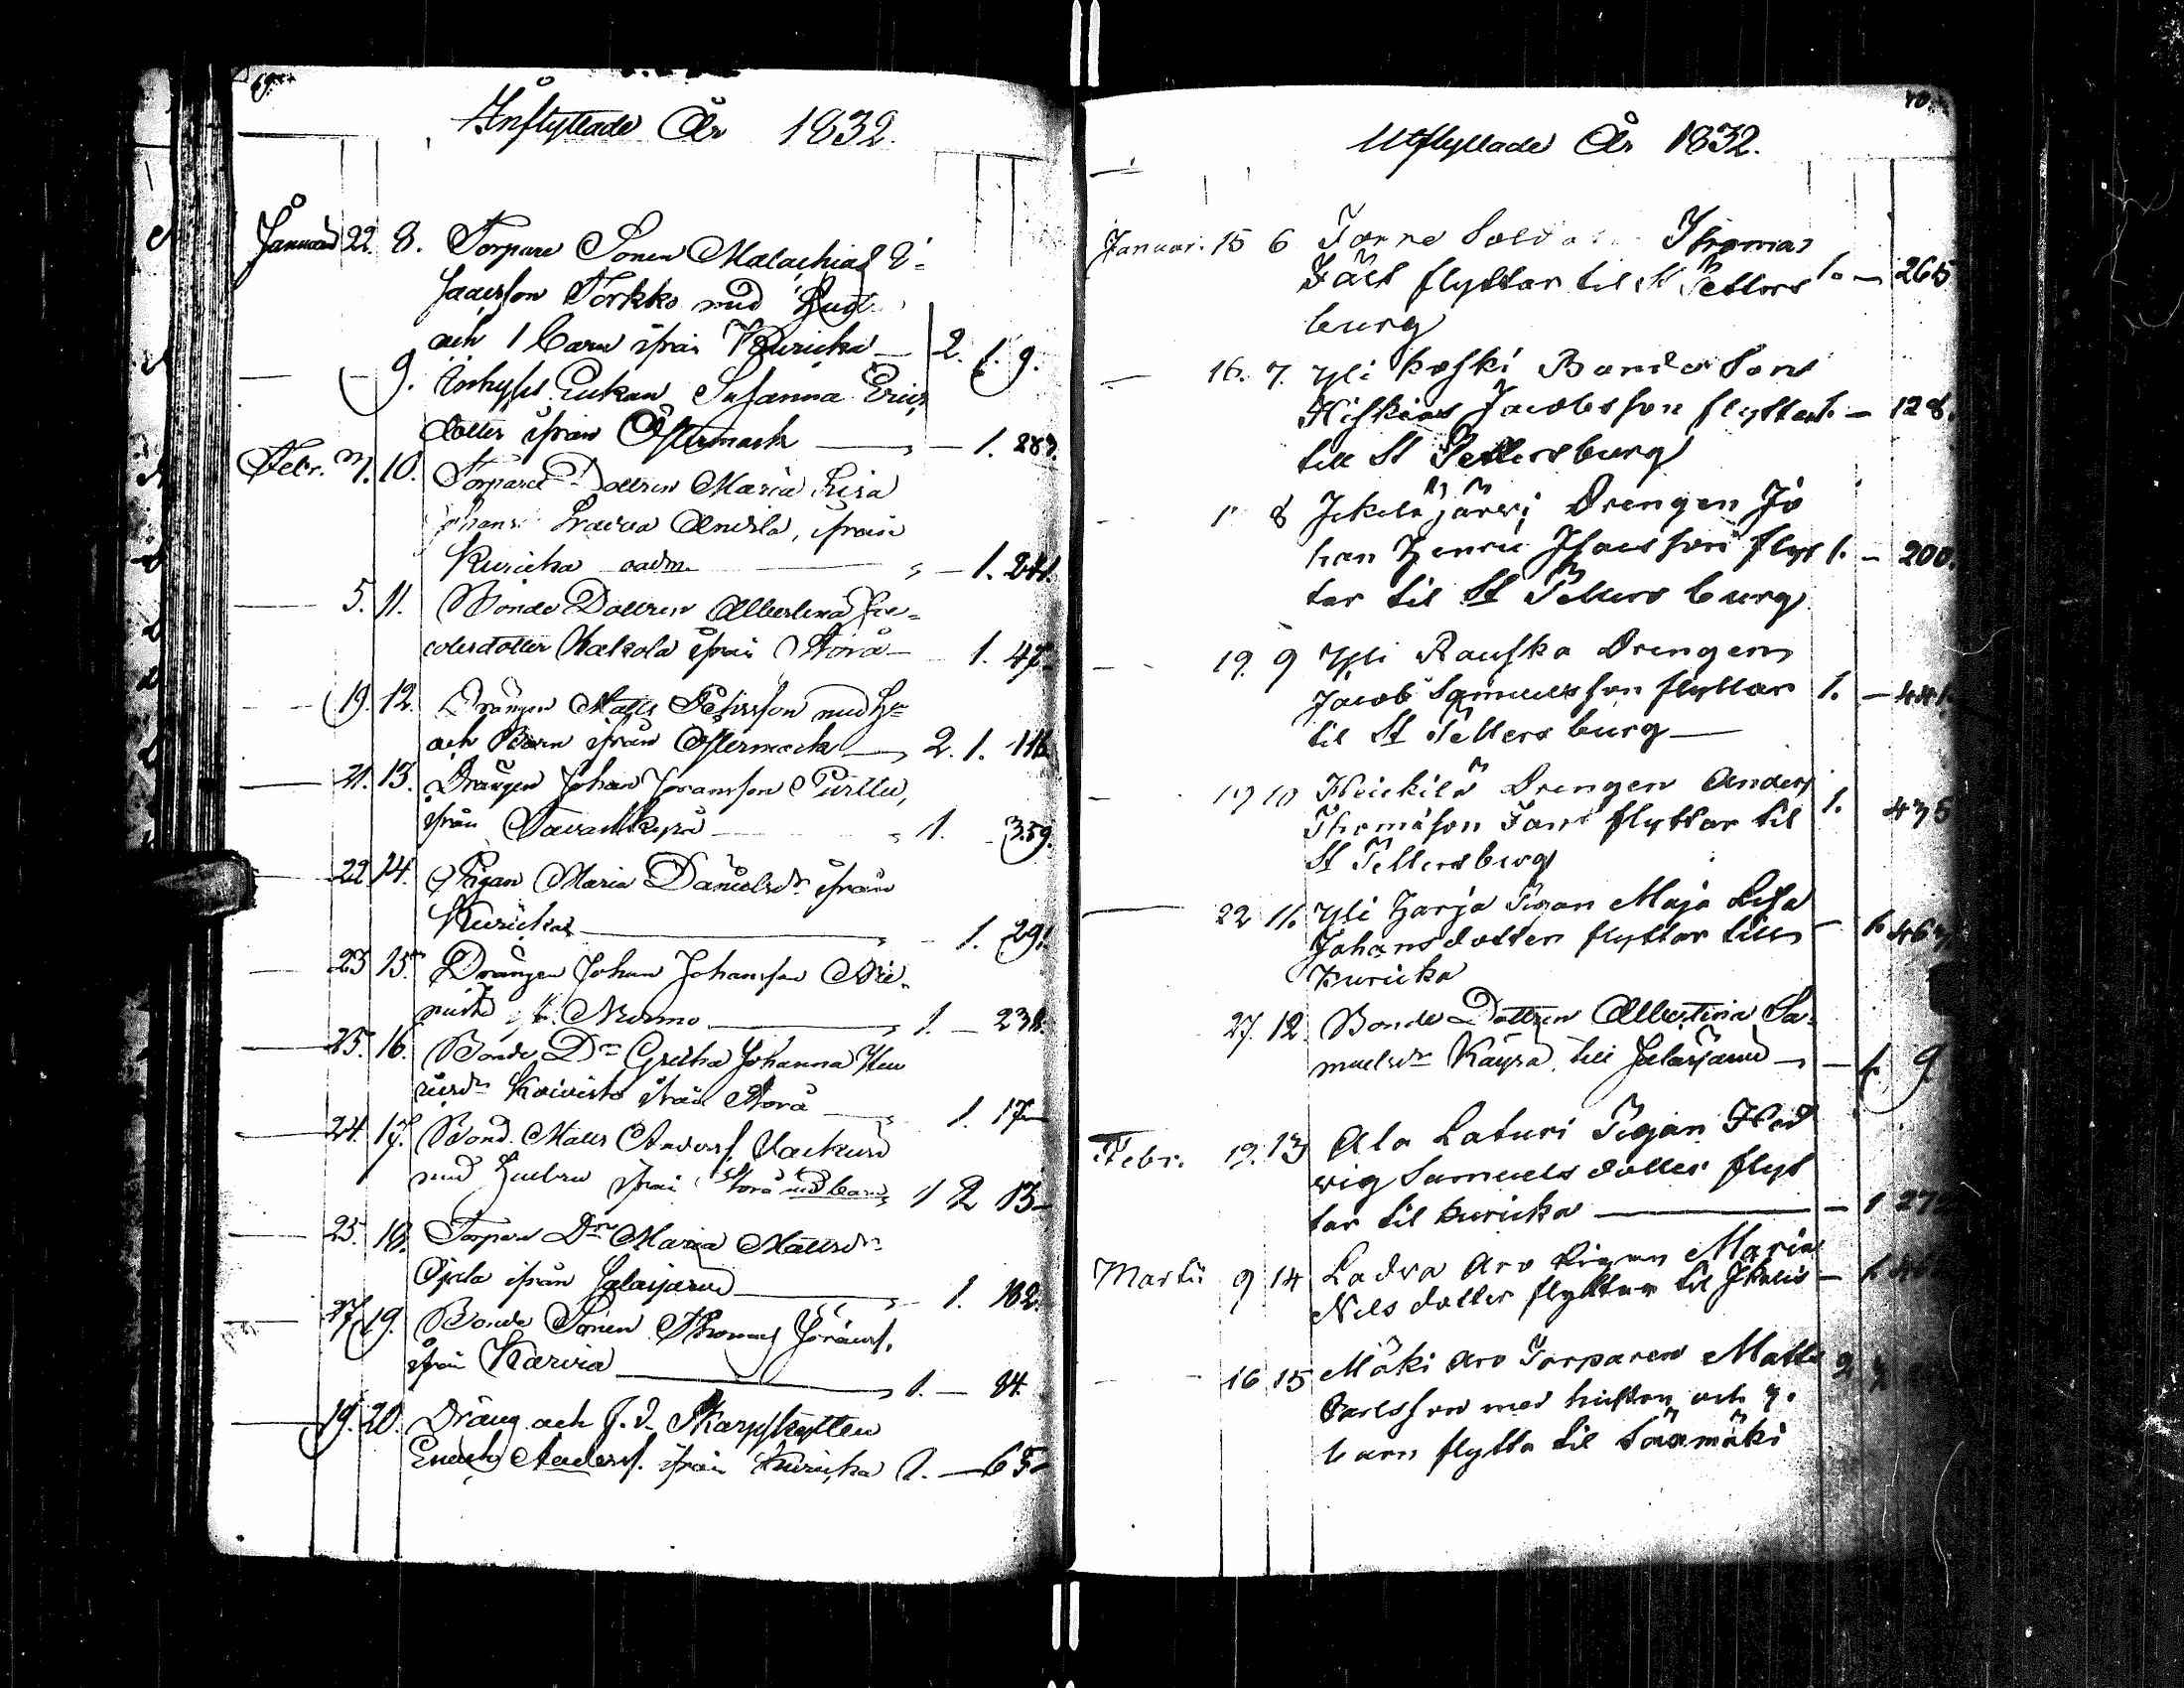 69.
Inflyttade År 1832.
Januari 22. 8. Torpare Sonen Malachias I-
sacsson Torkko med Hust.
och 1 barn ifrån Kuricka — 2. 1. 9.
— 9. Enkan Susanna Erics
dotter ifrån Östermark — 1. 283.
Febr. 7. 10. Torpare Dottren Maria Lisa
Johans. Andila, ifrån
Kuricka — 1. 241.
— 5. 11. Bonde Dottren Albertina Ja-
cobsdotter Kakola ifrån Storå — 1. 47
— 19. 12. Drängen Matts Petersson med H
och Barn ifrån Östermark — 2. 1. 116
— 21. 13. Drängen Johan Joransson Purttu,
ifrån Tavastkyro — 1. 359.
— 22. 14. Pigan Maria Danielsdr ifrån
Kuricka — 1. 291.
— 23 15. Drängen Johan Johansson Nie-
mistö Nurmo — 1. — 238.
— 25. 16. Bonde Dr Gretha Johanna Hen
ricsdr Koivisto ifrån Storå — 1. 17
— 24. 17. Bond. Matts Andersf.
med Hustru ifrån Storå med barn 1 2 13
— 25. 18. Torpare Dr Maria Mattsdr
Ojala ifrån Jalasjarvi — 1. 182.
— 27. 19. Bonde Sonen Thomas Göransf.
ifrån Karvia — 1. — 84.
— 19. 20. Dräng och f.d. Skarpskytten
Enoch Andersf. ifrån Kuricka 1. — 65
70.
Utflyttade År 1832.
Januar. 15 6 Thomas
Fält flyttar til St Petters 1. — 265
burg
— 16. 7. Yli Koski Bonda Son
Hiskias Jacobsson flyttar 1. — 128.
till St Pettersburg
8 Jokela järvi Drengen Jo
han Henric Isacsson flyt 1. — 200.
tar til St Petters burg
— 19. 9 Yli Rauska Drengen
Jacob Samuelsson flyttar 1. — 441.
til St Petters burg —
— 19 10 Heickilä Drengen Anders
Thomasson flyttar til 1. 435
St Pettersburg
— 22 11. Yli Harja Pigan Maja Lisa
Johans dotter flyttar till — 1. 467
Kuricka
27. 12. Bonde Dottren Albertina Sa-
muelsdr Käyrä till Jalasjarvi — 1. 9
Febr. 12. 13 Ala Laturi Pigan Hed
vig Samuels dotter flyt
tar til Kuricka — 1 272
Martii 9 14 Ladva Aro Pigan Maria
Nils dotter flyttar til Ikalis — 1.
— 16 15 Mäki Aro Torparen Matts 2
Carlsson med hustru och 4.
barn flytta til Säxmäki